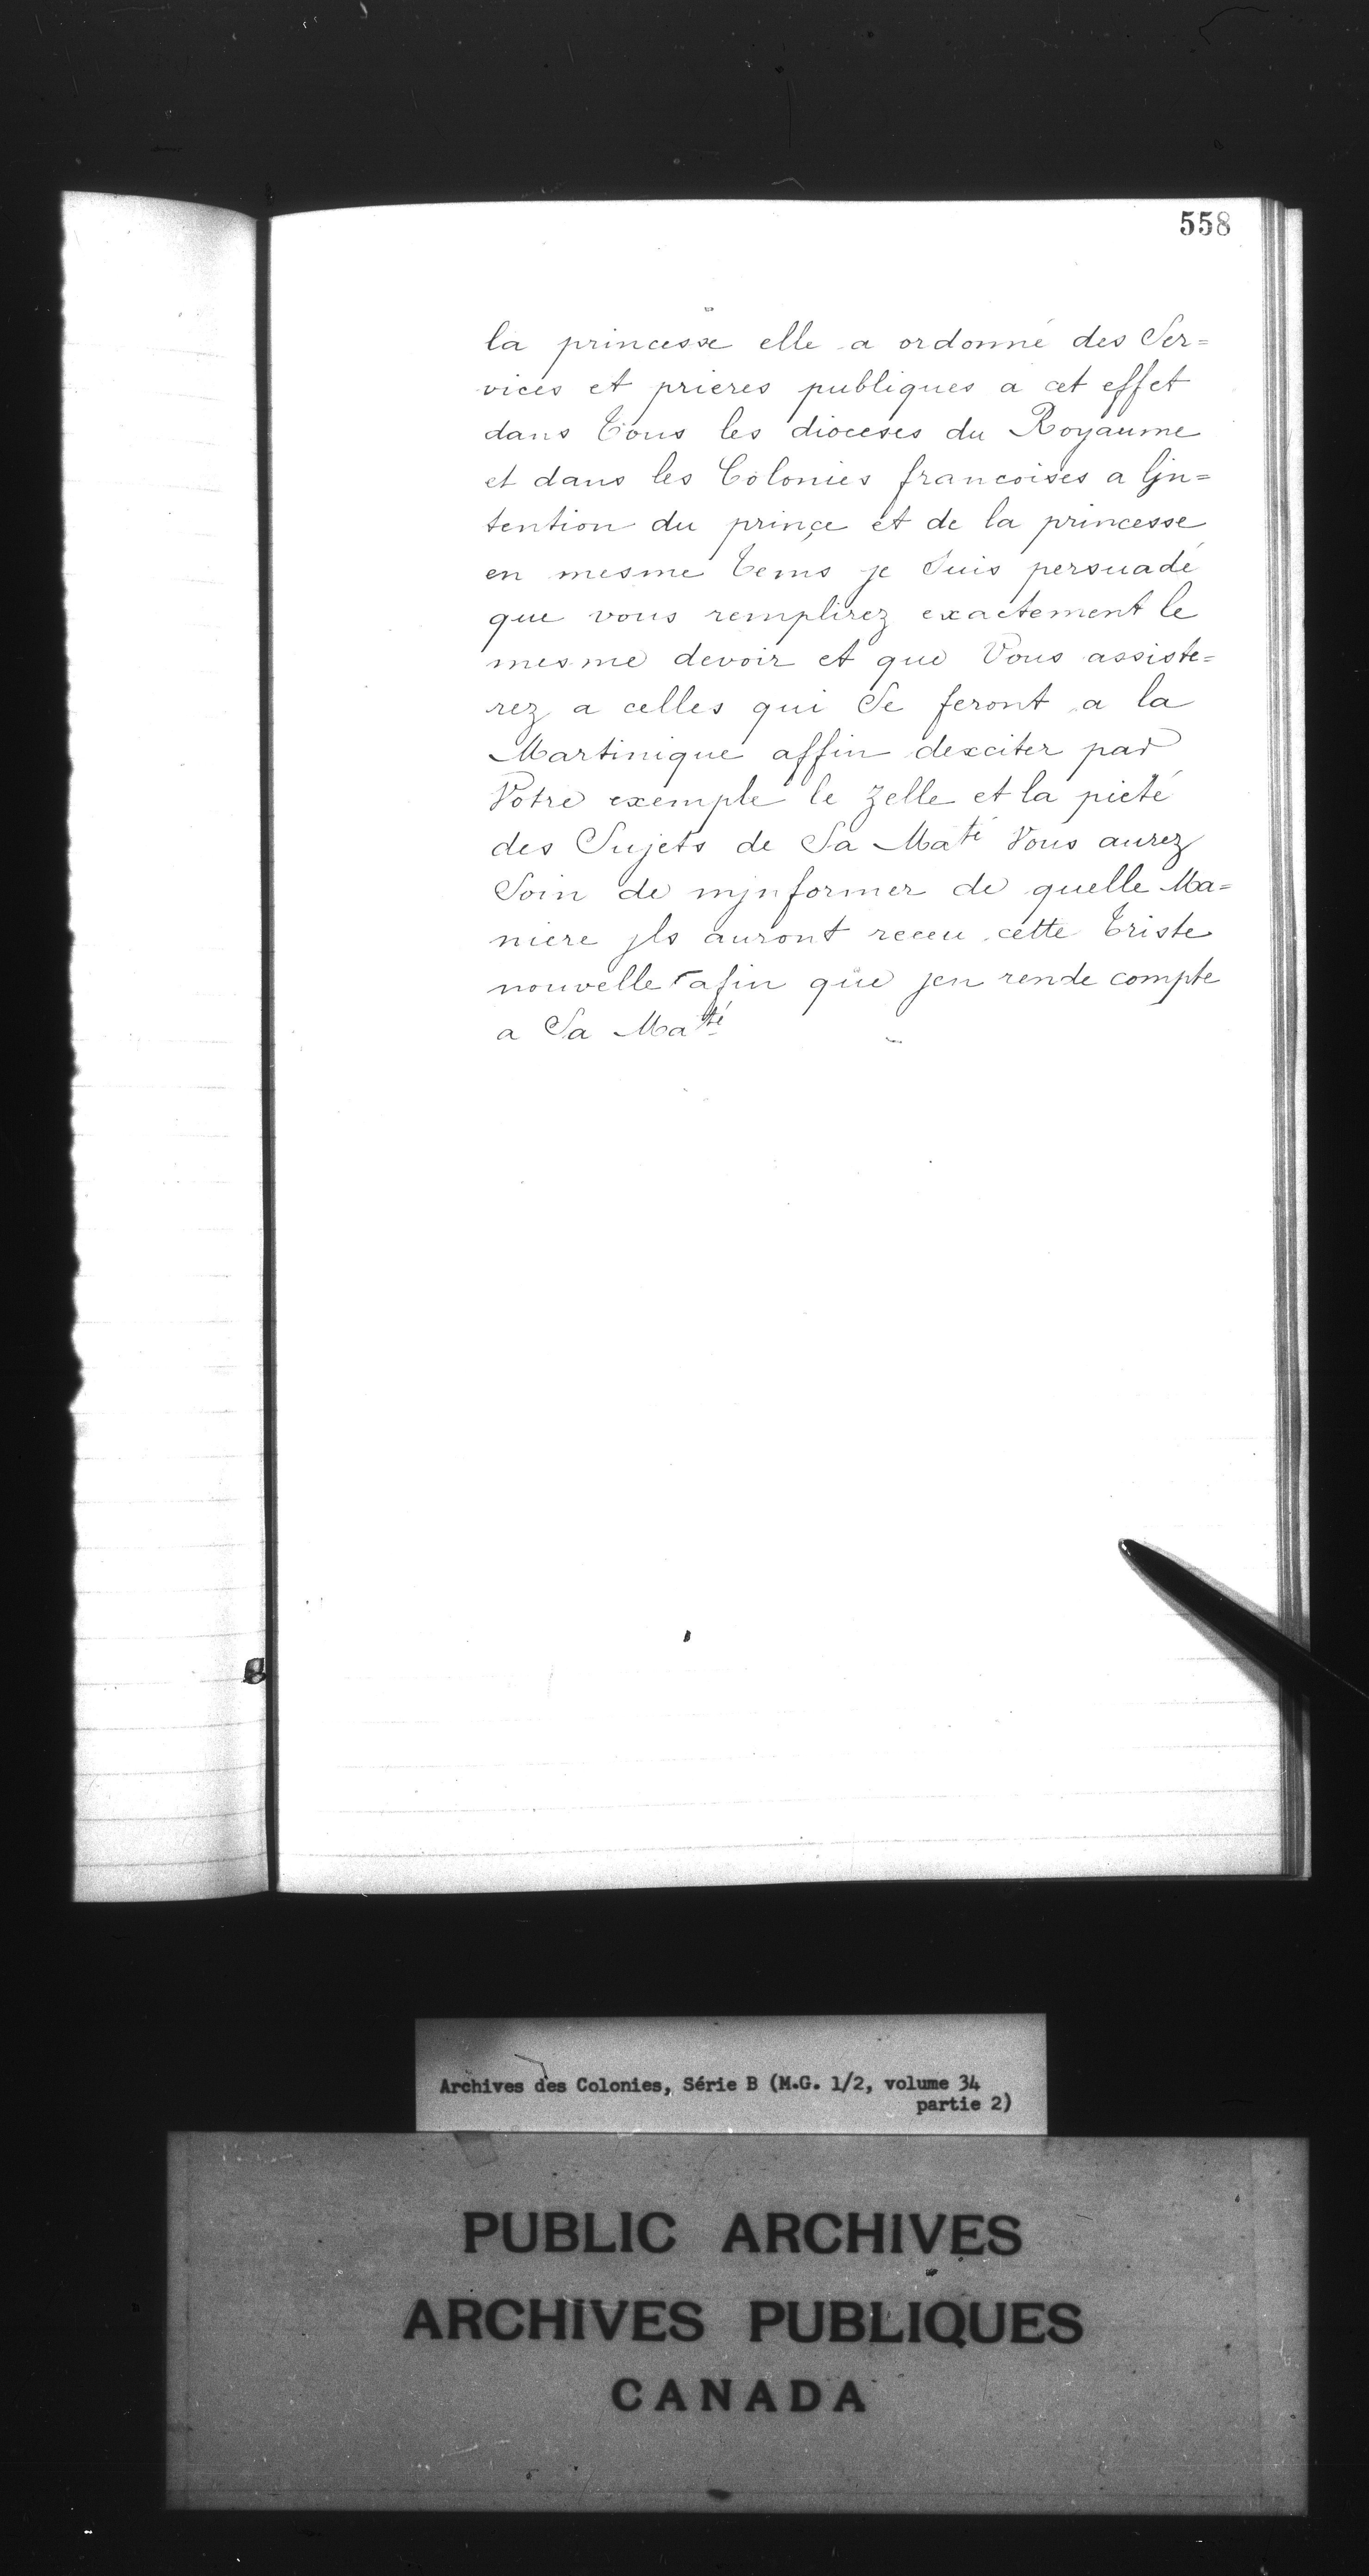 558
la princesse elle a ordonné des Ser=
vices et prieres publiques a cet effet
dans Tous les dioceses du Royaume
et dans les Colonies francoises a ljn=
tention du prince et de la princesse
en mesme Tems je Suis persuadé
que vous remplirez exactement le
mesme devoir et que Vous assiste=
rez a celles qui Se feront a la
Martinique affin dexciter par
Votre exemple le zelle et la pieté
des Sujets de Sa Maté Vous aurez
Soin de mjnformer de quelle Ma=
niere jls auront receu cette Triste
nouvelle afin que jen rende compte
a Sa Maté
Archives des Colonies, Série B (M.G. 1/2, volume 34
partie 2)
PUBLIC ARCHIVES
ARCHIVES PUBLIQUES
CANADA